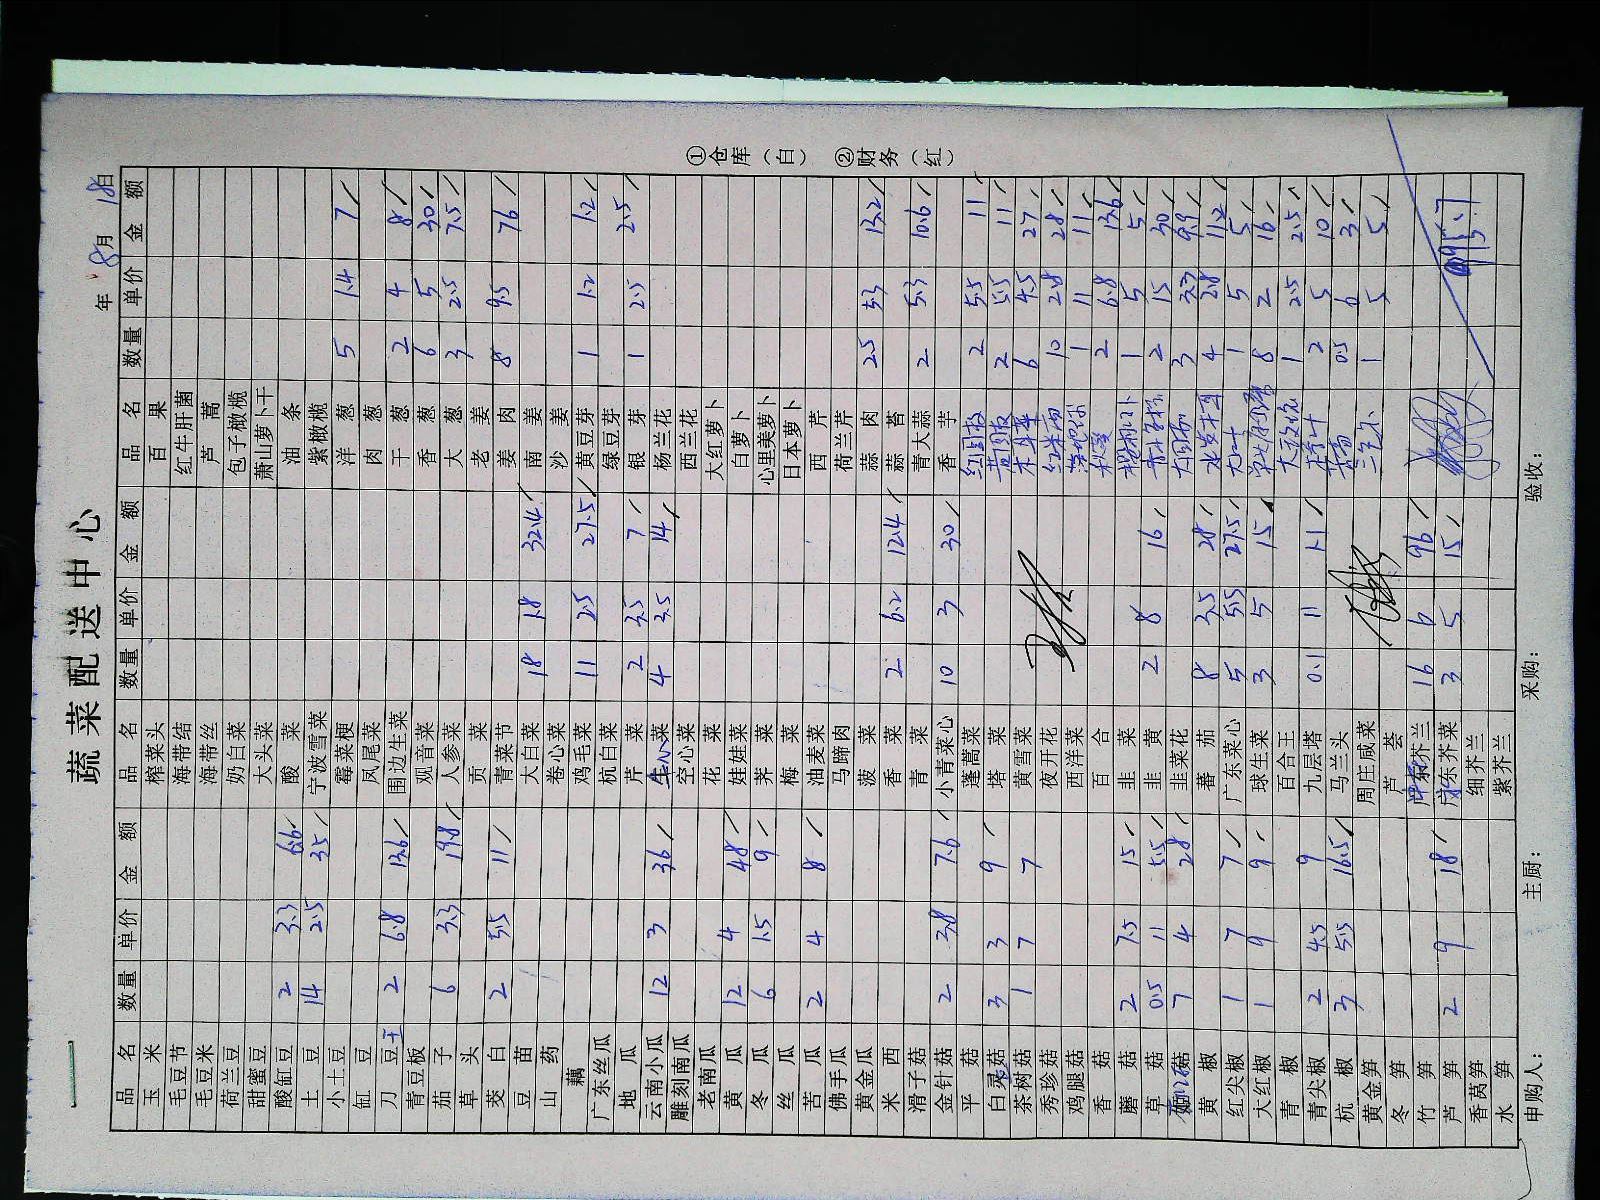 蔬菜配送中心
年 8月 18日
品名 数量 单价 金额 品名 数量 单价 金额 品名 数量 单价 金额
玉米 榨菜头 百果
毛豆节 海带结 红牛肝菌
毛豆米 海带丝 芦蒿
荷兰豆 奶白菜 包子橄榄
甜蜜豆 大头菜 萧山萝卜干
酸缸豆 2 3.3 6.6 酸菜 油条
土豆 14 2.5 35 宁波雪菜 紫橄榄
小土豆 莓菜梗 洋葱 5 1.4 7
缸豆 凤尾菜 肉葱
刀豆 2 6.8 13.6 围边生菜 干葱 2 4 8
青豆板 观音菜 香葱 6 5 30
茄子 6 3.3 19.8 人参菜 大葱 3 2.5 7.5
草头 贡菜 老姜
茭白 2 5.5 11 青菜节 姜肉 8 9.5 76
豆苗 大白菜 18 1.8 32.4 南姜
山药 卷心菜 沙姜
藕 鸡毛菜 11 2.5 27.5 黄豆芽 1 1.2 1.2
广东丝瓜 杭白菜 绿豆芽
地瓜 芹菜 2 3.5 7 银芽 1 2.5 2.5
云南小瓜 12 3 36 生菜 4 3.5 14 杨兰花
雕刻南瓜 空心菜 西兰花
老南瓜 花菜 大红萝卜
黄瓜 12 4 48 娃娃菜 白萝卜
冬瓜 6 1.5 9 荠菜 心里美萝卜
丝瓜 梅菜 日本萝卜
苦瓜 2 4 8 油麦菜 西芹
佛手瓜 马蹄肉 荷兰芹
黄金瓜 菠菜 蒜肉 2.5 5.3 13.2
米西 香菜 2 6.2 12.4 蒜苔
滑子菇 青菜 青大蒜 2 5.3 10.6
金针菇 2 3.8 7.6 小青菜心 10 3 30 香芋
平菇 蓬蒿菜 红圆椒 2 5.5 11
白灵菇 3 3 9 塔菜 黄圆椒 2 5.5 11
茶树菇 1 7 7 黄雪菜 6 4.5 27
秀珍菇 夜开花 10 2.8 28
鸡腿菇 西洋菜 1 11 11
香菇 百合 2 6.8 13.6
蘑菇 2 7.5 15 韭菜 1 5 5
草菇 0.5 11 5.5 韭黄 2 8 16 2 15 30
7 4 28 韭菜花 3 3.3 9.9
黄椒 蕃茄 8 3.5 28 4 2.8 11.2
红尖椒 1 7 7 广东菜心 5 5.5 27.5 1 5 5
大红椒 1 9 9 球生菜 3 5 15 8 2 16
青椒 百合王 1 2.5 2.5
青尖椒 2 4.5 9 九层塔 0.1 11 1.1 2 5 10
杭椒 3 5.5 16.5 马兰头 0.5 6 3
黄金笋 周庄咸菜 1 5 5
冬笋 芦荟
竹笋 芥兰 16 6 96
芦笋 2 9 18 芥菜 3 5 15
香莴笋 细芥兰
水笋 紫芥兰
申购人： 主厨： 采购： 验收：
①仓库（白） ②财务（红）